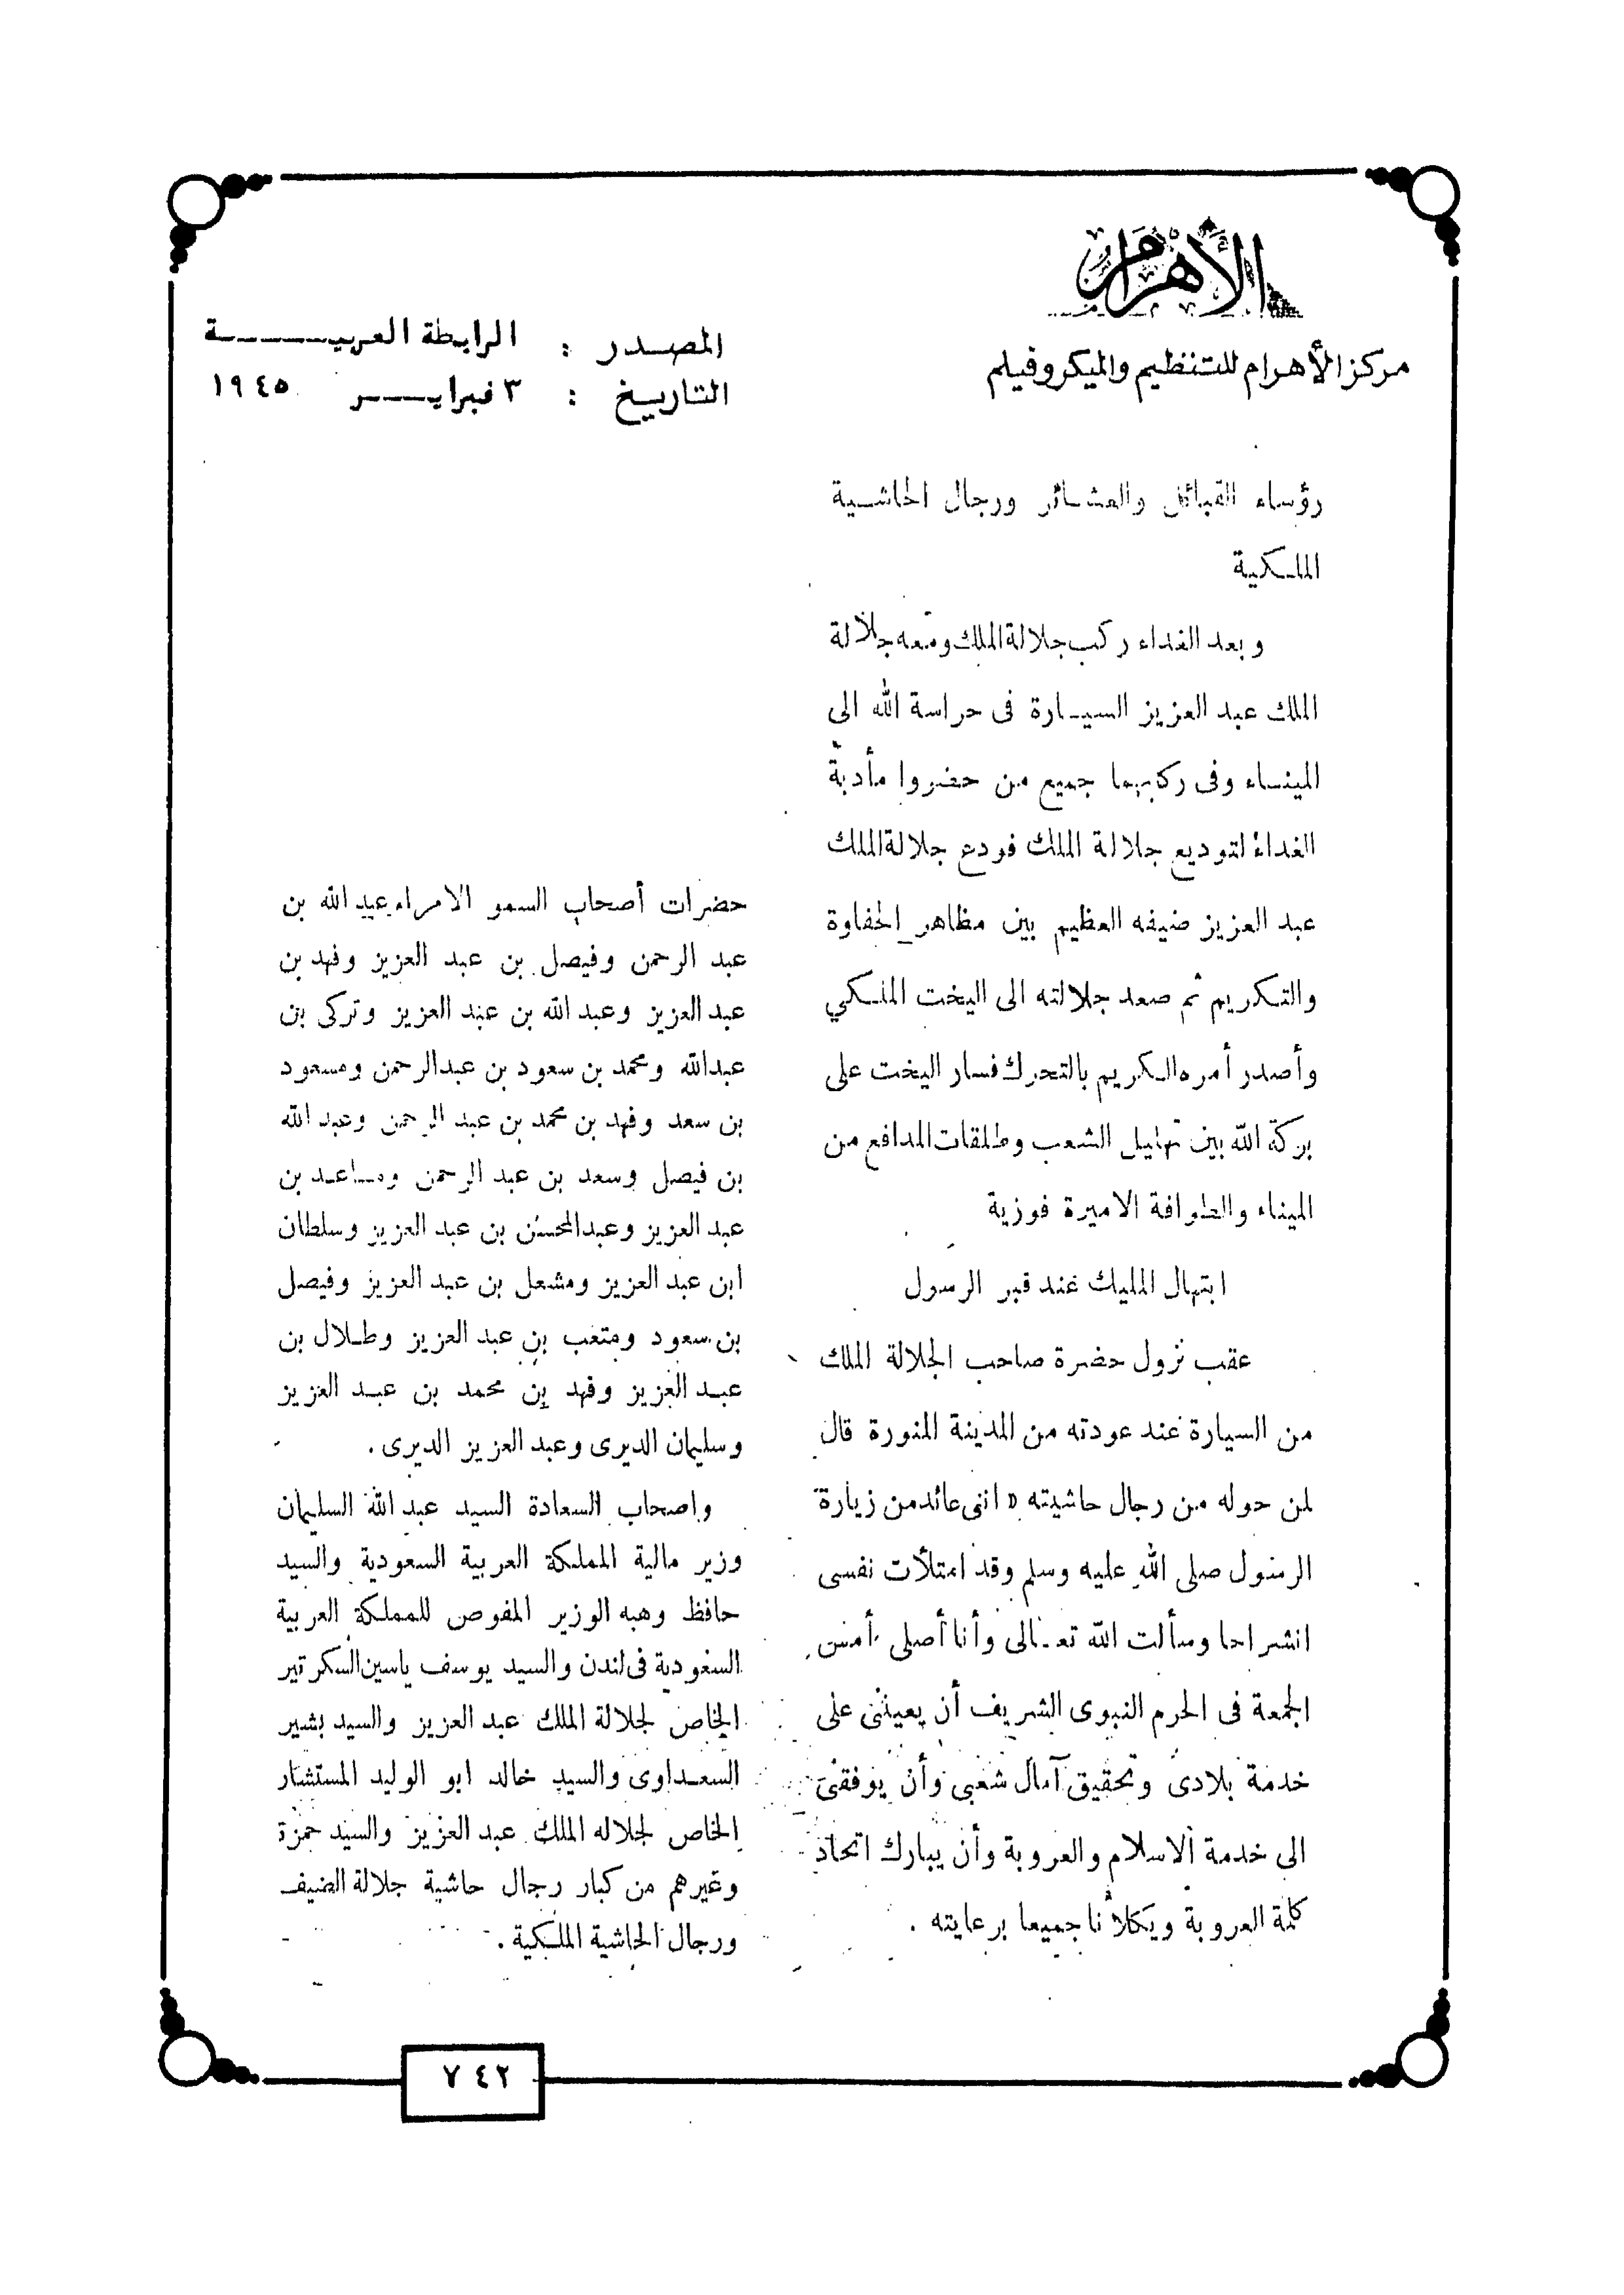 الأهرام
مركز الأهرام للتنظيم والميكروفيلم
المصدر : الرابطة العربية
التاريخ : ٣ فبراير ١٩٤٥
رؤساء القبائل والعشائر ورجال الحاشية
الملكية
وبعد الغداء ركب جلالة الملك ومعه جلالة
الملك عبد العزيز السيارة فى حراسة الله الى
الميناء وفى ركابهما جميع من حضروا مأدبة
الغداء لتوديع جلالة الملك فودع جلالة الملك
عبد العزيز ضيفه العظيم بين مظاهر الحفاوة
والتكريم ثم صعد جلالته الى اليخت الملكي
وأصدر أمره الكريم بالتحرك فسار اليخت على
بركة الله بين تهليل الشعب وطلقات المدافع من
الميناء والطوافة الاميرة فوزية
ابتهال المليك عند قبر الرسول
عقب نزول حضرة صاحب الجلالة الملك
من السيارة عند عودته من المدينة المنورة قال
لمن حوله من رجال حاشيته « اننى عائد من زيارة
الرسول صلى الله عليه وسلم وقد امتلأت نفسى
انشراحا وسألت الله تعالى وأنا أصلى أمس
الجمعة فى الحرم النبوى الشريف أن يعيننى على
خدمة بلادى وتحقيق آمال شعبى وأن يوفقنى
الى خدمة الاسلام والعروبة وأن يبارك اتحاد
كلمة العروبة ويكلأنا جميعا برعايته .
حضرات أصحاب السمو الامراء عبد الله بن
عبد الرحمن وفيصل بن عبد العزيز وفهد بن
عبد العزيز وعبد الله بن عبد العزيز وتركى بن
عبدالله ومحمد بن سعود بن عبدالرحمن ومسعود
بن سعد وفهد بن محمد بن عبد الرحمن وعبد الله
بن فيصل وسعد بن عبد الرحمن ومساعد بن
عبد العزيز وعبدالمحسن بن عبد العزيز وسلطان
ابن عبد العزيز ومشعل بن عبد العزيز وفيصل
بن سعود ومتعب بن عبد العزيز وطلال بن
عبد العزيز وفهد بن محمد بن عبد العزيز
وسليمان الديرى وعبد العزيز الديرى .
واصحاب السعادة السيد عبد الله السليمان
وزير مالية المملكة العربية السعودية والسيد
حافظ وهبه الوزير المفوض للمملكة العربية
السعودية فى لندن والسيد يوسف ياسين السكرتير
الخاص لجلالة الملك عبد العزيز والسيد بشير
السعداوى والسيد خالد ابو الوليد المستشار
الخاص لجلاله الملك عبد العزيز والسيد حمزة
وغيرهم من كبار رجال حاشية جلالة الضيف
ورجال الحاشية الملكية .
٧٤٢